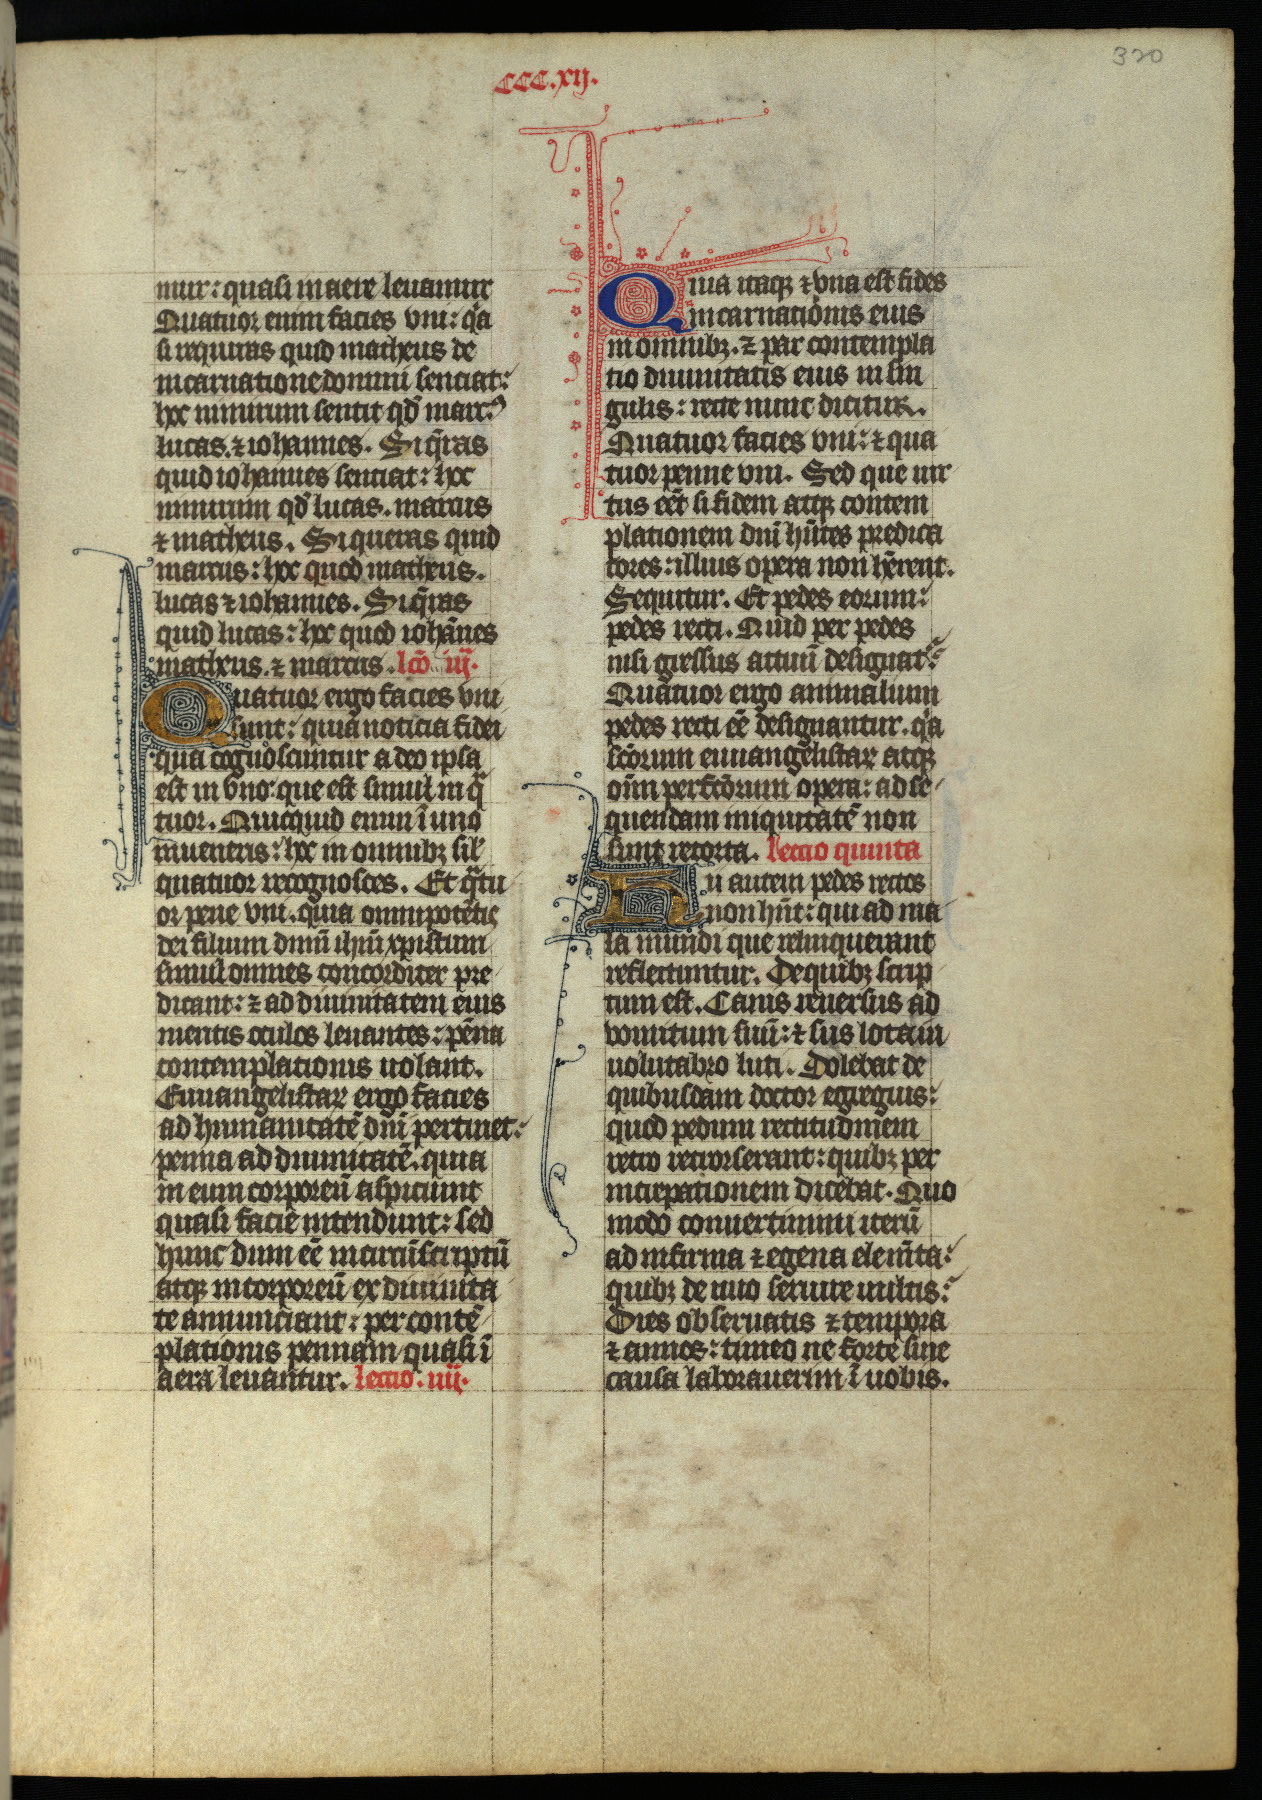 320
CCC.xij.
mur: quasi in aere leuamur
Quatuor enim facies vni: qa
si requiras quid matheus de
incarnatione domini senciat:
hoc nimirum sentit qd marc9
lucas. ⁊ iohannes. Si q̄ras
quid iohannes senciat: hoc
nimirum qd lucas. marcus
⁊ matheus. Si queras quid
marcus: hoc quod matheus.
lucas ⁊ iohannes. Si q̄ras
quid lucas: hoc quod iohānes
matheus. ⁊ marcus. lcō. iij.
Quatuor ergo facies vni
sunt: quia noticia fidei
qua cognoscuntur a deo ipsa
est in vno: que est simul in q̄
tuor. Quicquid enim ī uno
inueneris: hoc in omnibꝫ sil'
quatuor recognosces. Et q̄tu
or pene vni. quia omnipotētis
dei filium dnm̄ ihm̄ xpistum
simul omnes concorditer pre
dicant: ⁊ ad diuinitatem eius
mentis oculos leuantes: pēna
contemplationis uolant.
Euuangelistaꝝ ergo facies
ad humanitatē dnī pertinet:
penna ad diuinitatē. quia
in eum corporeū aspiciunt
quasi faciē intendunt: sed
hunc dum eē incircūscriptū
atqꝫ incorporeū ex diuinita
te annunciant: per contē
plationis pennam quasi ī
aera leuantur. lectio. iiij.
Quia itaqꝫ ⁊ vna est fides
incarnationis eius
in omnibꝫ. ⁊ par contempla
tio diuinitatis eius in sin
gulis: recte nunc dicitur.
Quatuor facies vni: ⁊ qua
tuor penne vni. Sed que uir
tus eēt si fidem atqꝫ contem
plationem dnī hn̄tes predica
tores: illius opera non hr̄ent.
Sequitur. Et pedes eorum:
pedes recti. Quid per pedes
nisi gressus actuū designat᷑:
Quatuor ergo animalium
pedes recti eē designantur. qa
scōrum euuangelistaꝝ atqꝫ
oīm perfcōrum opera: ad se
quendam iniquitatē non
sunt retorta. lectio quinta
Hii autem pedes rectos
non hn̄t: qui ad ma
la mundi que relinquerant
reflectuntur. De quibꝫ scrip
tum est. Canis reuersus ad
vomitum suū: ⁊ sus lota in
uolutabro luti. Dolebat de
quibusdam doctor egregius:
quod pedum rectitudinem
retro retorserant: quibꝫ per
increpationem dicebat. Quo
modo conuertimini iterū
ad infirma ⁊ egena elem̄ta:
quibꝫ de nuo seruire uultis:
Dies obseruatis ⁊ tempora
⁊ annos: timeo ne forte sine
causa laborauerim ī uobis.